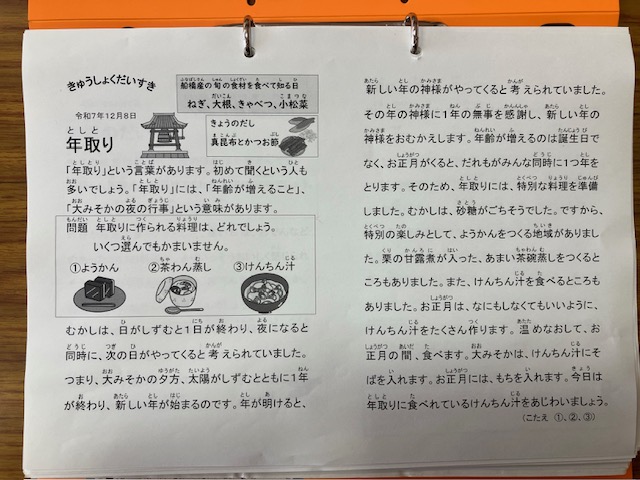 きゅうしょくだいすき
船橋産の旬の食材を食べて知る日
ねぎ、大根、きゃべつ、小松菜
令和7年12月8日
年取り
きょうのだし
真昆布とかつお節
「年取り」という言葉があります。初めて聞くという人も
多いでしょう。「年取り」には、「年齢が増えること」、
「大みそかの夜の行事」という意味があります。
問題 年取りに作られる料理は、どれでしょう。
いくつ選んでもかまいません。
①ようかん ②茶わん蒸し ③けんちん汁
むかしは、日がしずむと1日が終わり、夜になると
同時に、次の日がやってくると考えられていました。
つまり、大みそかの夕方、太陽がしずむとともに1年
が終わり、新しい年が始まるのです。年が明けると、
新しい年の神様がやってくると考えられていました。
その年の神様に1年の無事を感謝し、新しい年の
神様をおむかえします。年齢が増えるのは誕生日で
なく、お正月がくると、だれもがみんな同時に1つ年を
とります。そのため、年取りには、特別な料理を準備
しました。むかしは、砂糖がごちそうでした。ですから、
特別の楽しみとして、ようかんをつくる地域がありまし
た。栗の甘露煮が入った、あまい茶碗蒸しをつくると
ころもありました。また、けんちん汁を食べるところも
ありました。お正月は、なにもしなくてもいいように、
けんちん汁をたくさん作ります。温めなおして、お
正月の間、食べます。大みそかは、けんちん汁にそ
ばを入れます。お正月には、もちを入れます。今日は
年取りに食べられているけんちん汁をあじわいましょう。
（こたえ ①、②、③）